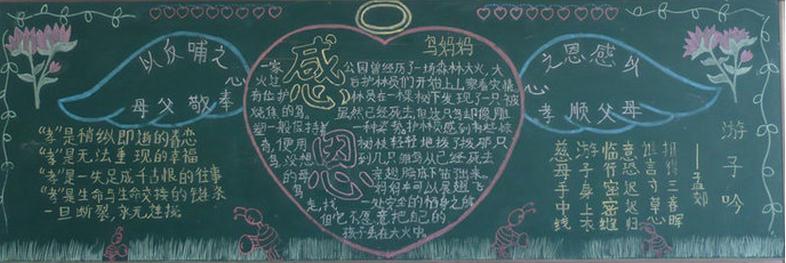 以反哺之
心
奉
敬
父
母
之恩感以
心
孝
顺
父
母
"孝"是稍纵即逝的眷恋
"孝"是无法重现的幸福
"孝"是一失足成千古恨的往事
"孝"是生命与生命交接的链条
一旦断裂,永无连接
感
恩
鸟妈妈
公园曾经历了一场森林大火,大
火过后护林员们开始上山察看灾情
有位护林员在一棵树下发现了一只被
烧焦的鸟。虽然已经死去
一样
树枝轻轻地拨了拨那只
鸟,没想到几只雏鸟从已经死去
的母亲翅膀底下
妈妈本可以展翅飞
走,找一处安全的栖身之
但它不愿意把自己的
孩子丢在大火中。
游子吟
——孟郊
慈母手中线
游子身上衣
临行密密缝
意恐迟迟归
谁言寸草心
报得三春晖